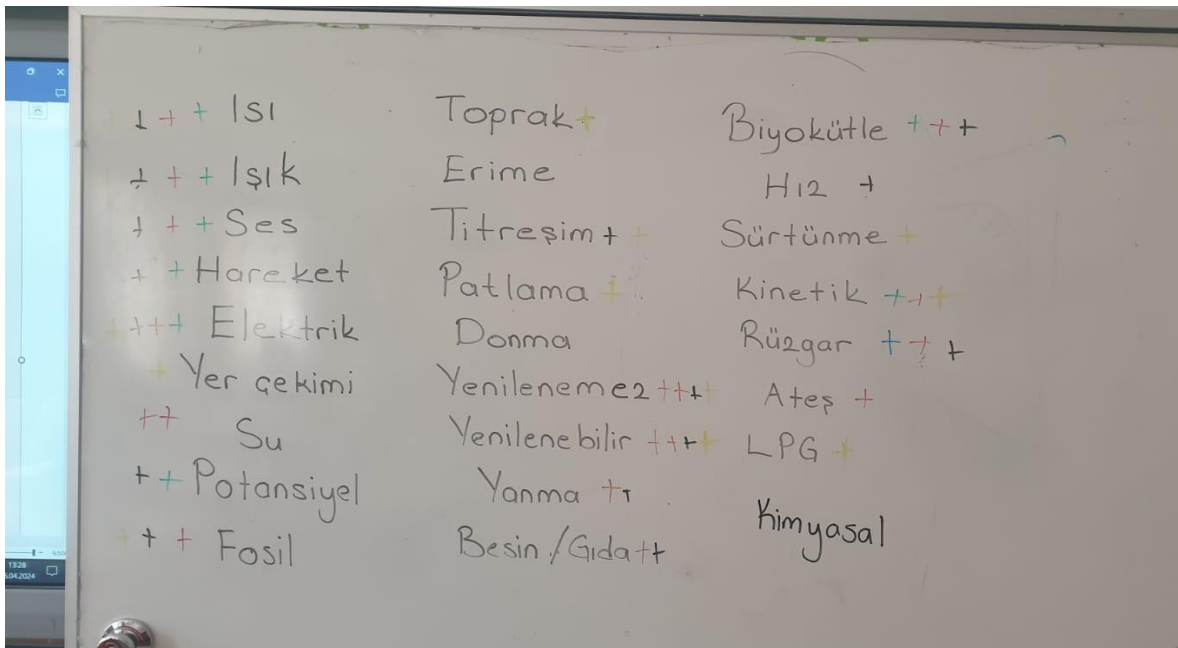 + + + Isı
+ + + Işık
+ + + Ses
+ + Hareket
+ + + + Elektrik
+ Yer çekimi
++ Su
++ Potansiyel
+ + + Fosil
Toprak +
Erime
Titreşim + +
Patlama +
Donma
Yenilenemez + + + +
Yenilenebilir + + + +
Yanma ++
Besin / Gıda ++
Biyokütle + + +
Hız +
Sürtünme +
Kinetik + + +
Rüzgar + + +
Ateş +
LPG +
Kimyasal
13:28
5.04.2024